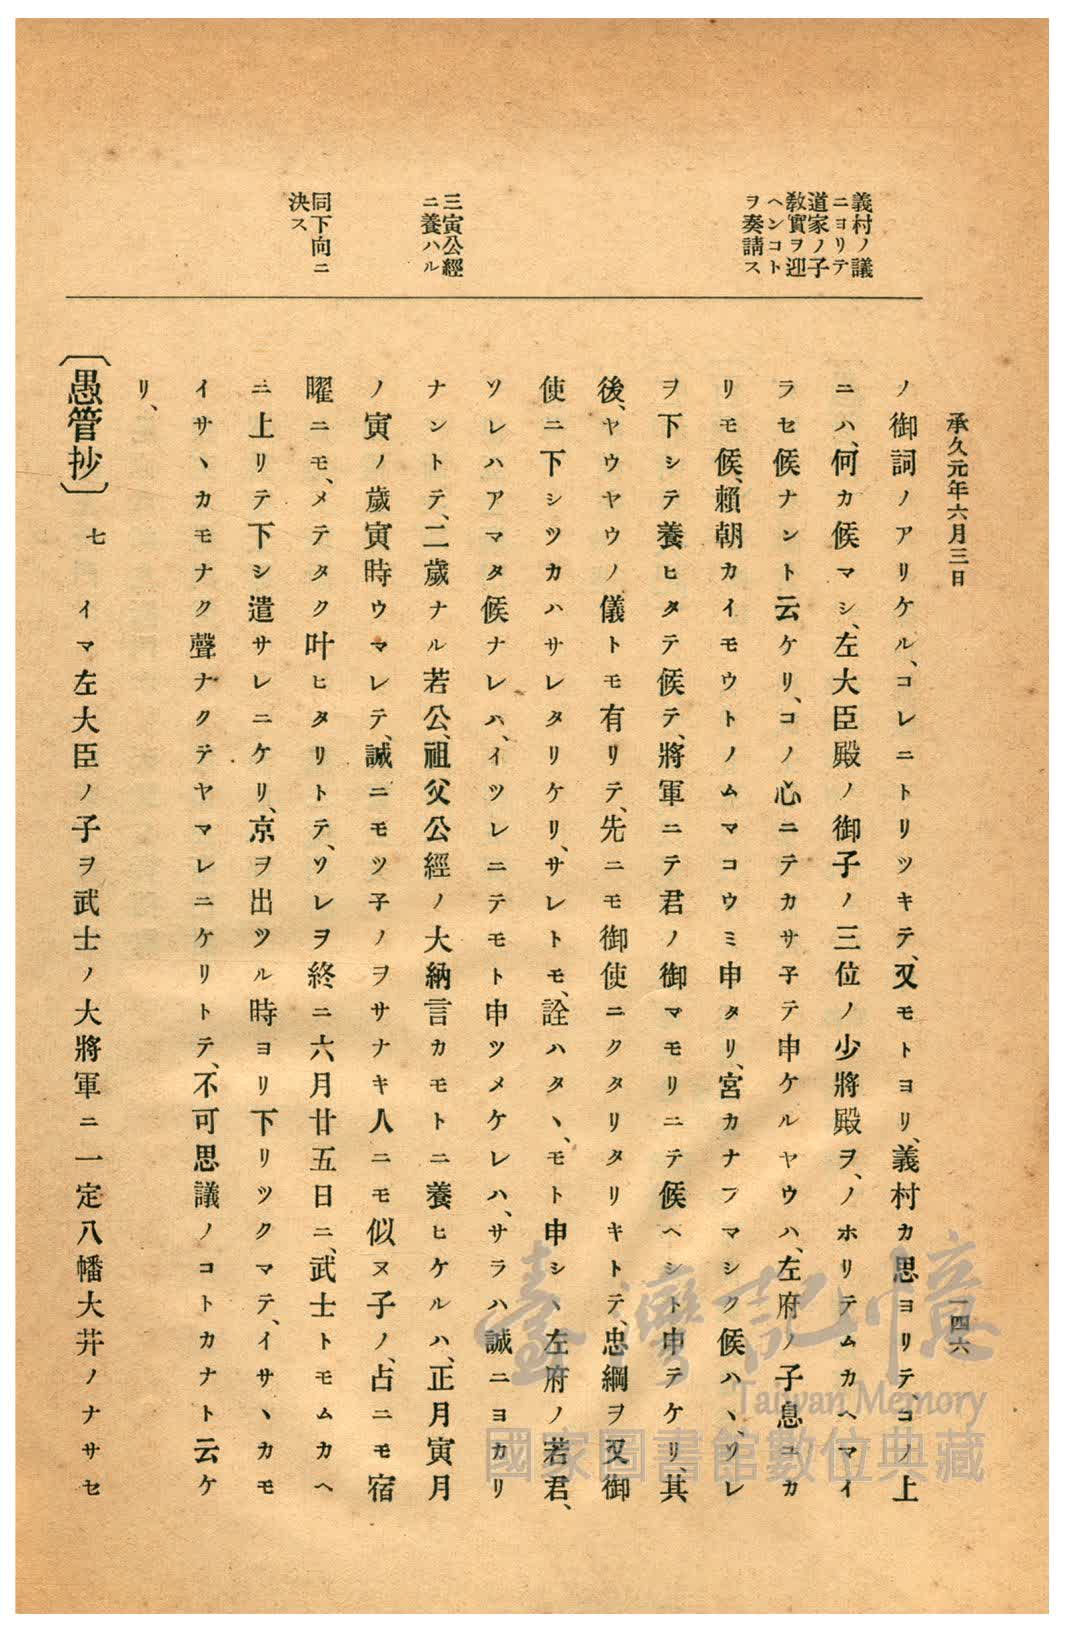 承久元年六月三日
一四六
義村ノ議
ニヨリテ
道家ノ子
教實ヲ迎
ヘンコト
ヲ奏請ス
三寅公經
ニ養ハル
同下向ニ
決ス
ノ御詞ノアリケル、コレニトリツキテ、又モトヨリ、義村カ思ヨリテ、コノ上
ニハ、何カ候マシ、左大臣殿ノ御子ノ三位ノ少將殿ヲ、ノホリテムカヘマイ
ラセ候ナント云ケリ、コノ心ニテカサ子テ申ケルヤウハ、左府ノ子息ユカ
リモ候、賴朝カイモウトノムマコウミ申タリ、宮カナフマシク候ハヽ、ソレ
ヲ下シテ養ヒタテ候テ、將軍ニテ君ノ御マモリニテ候ヘシト申テケリ、其
後、ヤウヤウノ儀トモ有リテ、先ニモ御使ニクタリタリキトテ、忠綱ヲ又御
使ニ下シツカハサレタリケリ、サレトモ、詮ハタヽ、モト申シヽ左府ノ若君、
ソレハアマタ候ナレハ、イツレニテモト申ツメケレハ、サラハ誠ニヨカリ
ナントテ、二歲ナル若公、祖父公經ノ大納言カモトニ養ヒケルハ、正月寅月
ノ寅ノ歲寅時ウマレテ、誠ニモツ子ノヲサナキ人ニモ似ヌ子ノ、占ニモ宿
曜ニモ、メテタク叶ヒタリトテ、ソレヲ終ニ六月廿五日ニ、武士トモムカヘ
ニ上リテ下シ遣サレニケリ、京ヲ出ツル時ヨリ下リツクマテ、イサヽカモ
イサヽカモナク聲ナクテヤマレニケリトテ、不可思議ノコトカナト云ケ
リ、
〔愚管抄〕 七 イマ左大臣ノ子ヲ武士ノ大將軍ニ一定八幡大井ノナサセ
臺灣記憶
Taiwan Memory
國家圖書館數位典藏